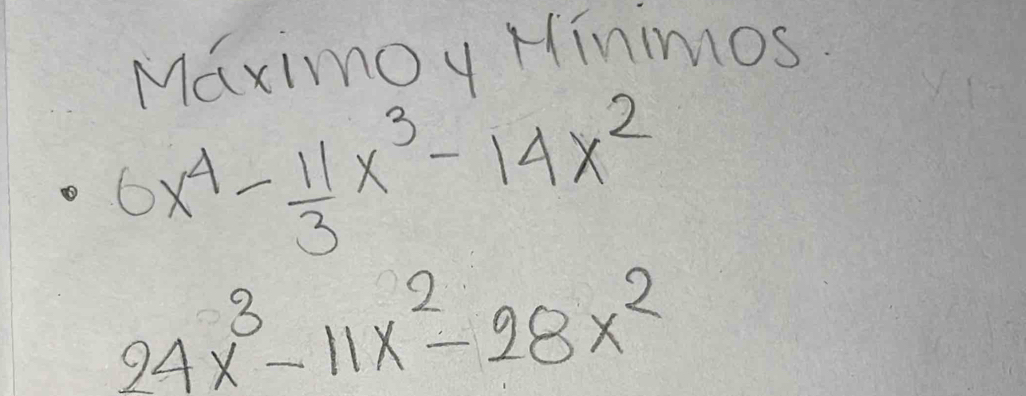 Máximo y Mínimos.
• 6x⁴ - 11/3 x³ - 14x²
24x³ - 11x² - 28x²